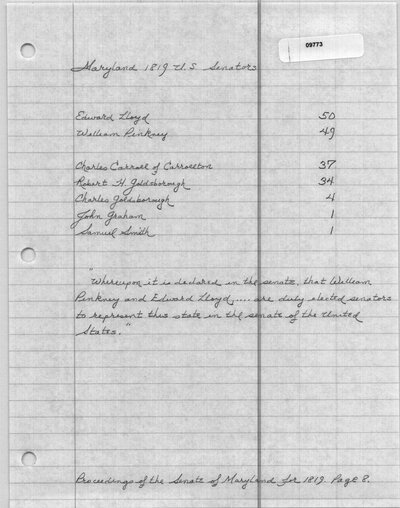 09773
Maryland 1819 U.S Senators
Edward Lloyd 50
William Pinkney 49
Charles Carroll of Carrollton 37
Robert H. Goldsborough 34
Charles Goldsborough 4
John Graham 1
Samuel Smith 1
"Whereupon it is declared in the senate, that William
Pinkney and Edward Lloyd..... are duly elected senators
to represent this state in the senate of the United
States."
Proceedings of the Senate of Maryland for 1819. Page 8.